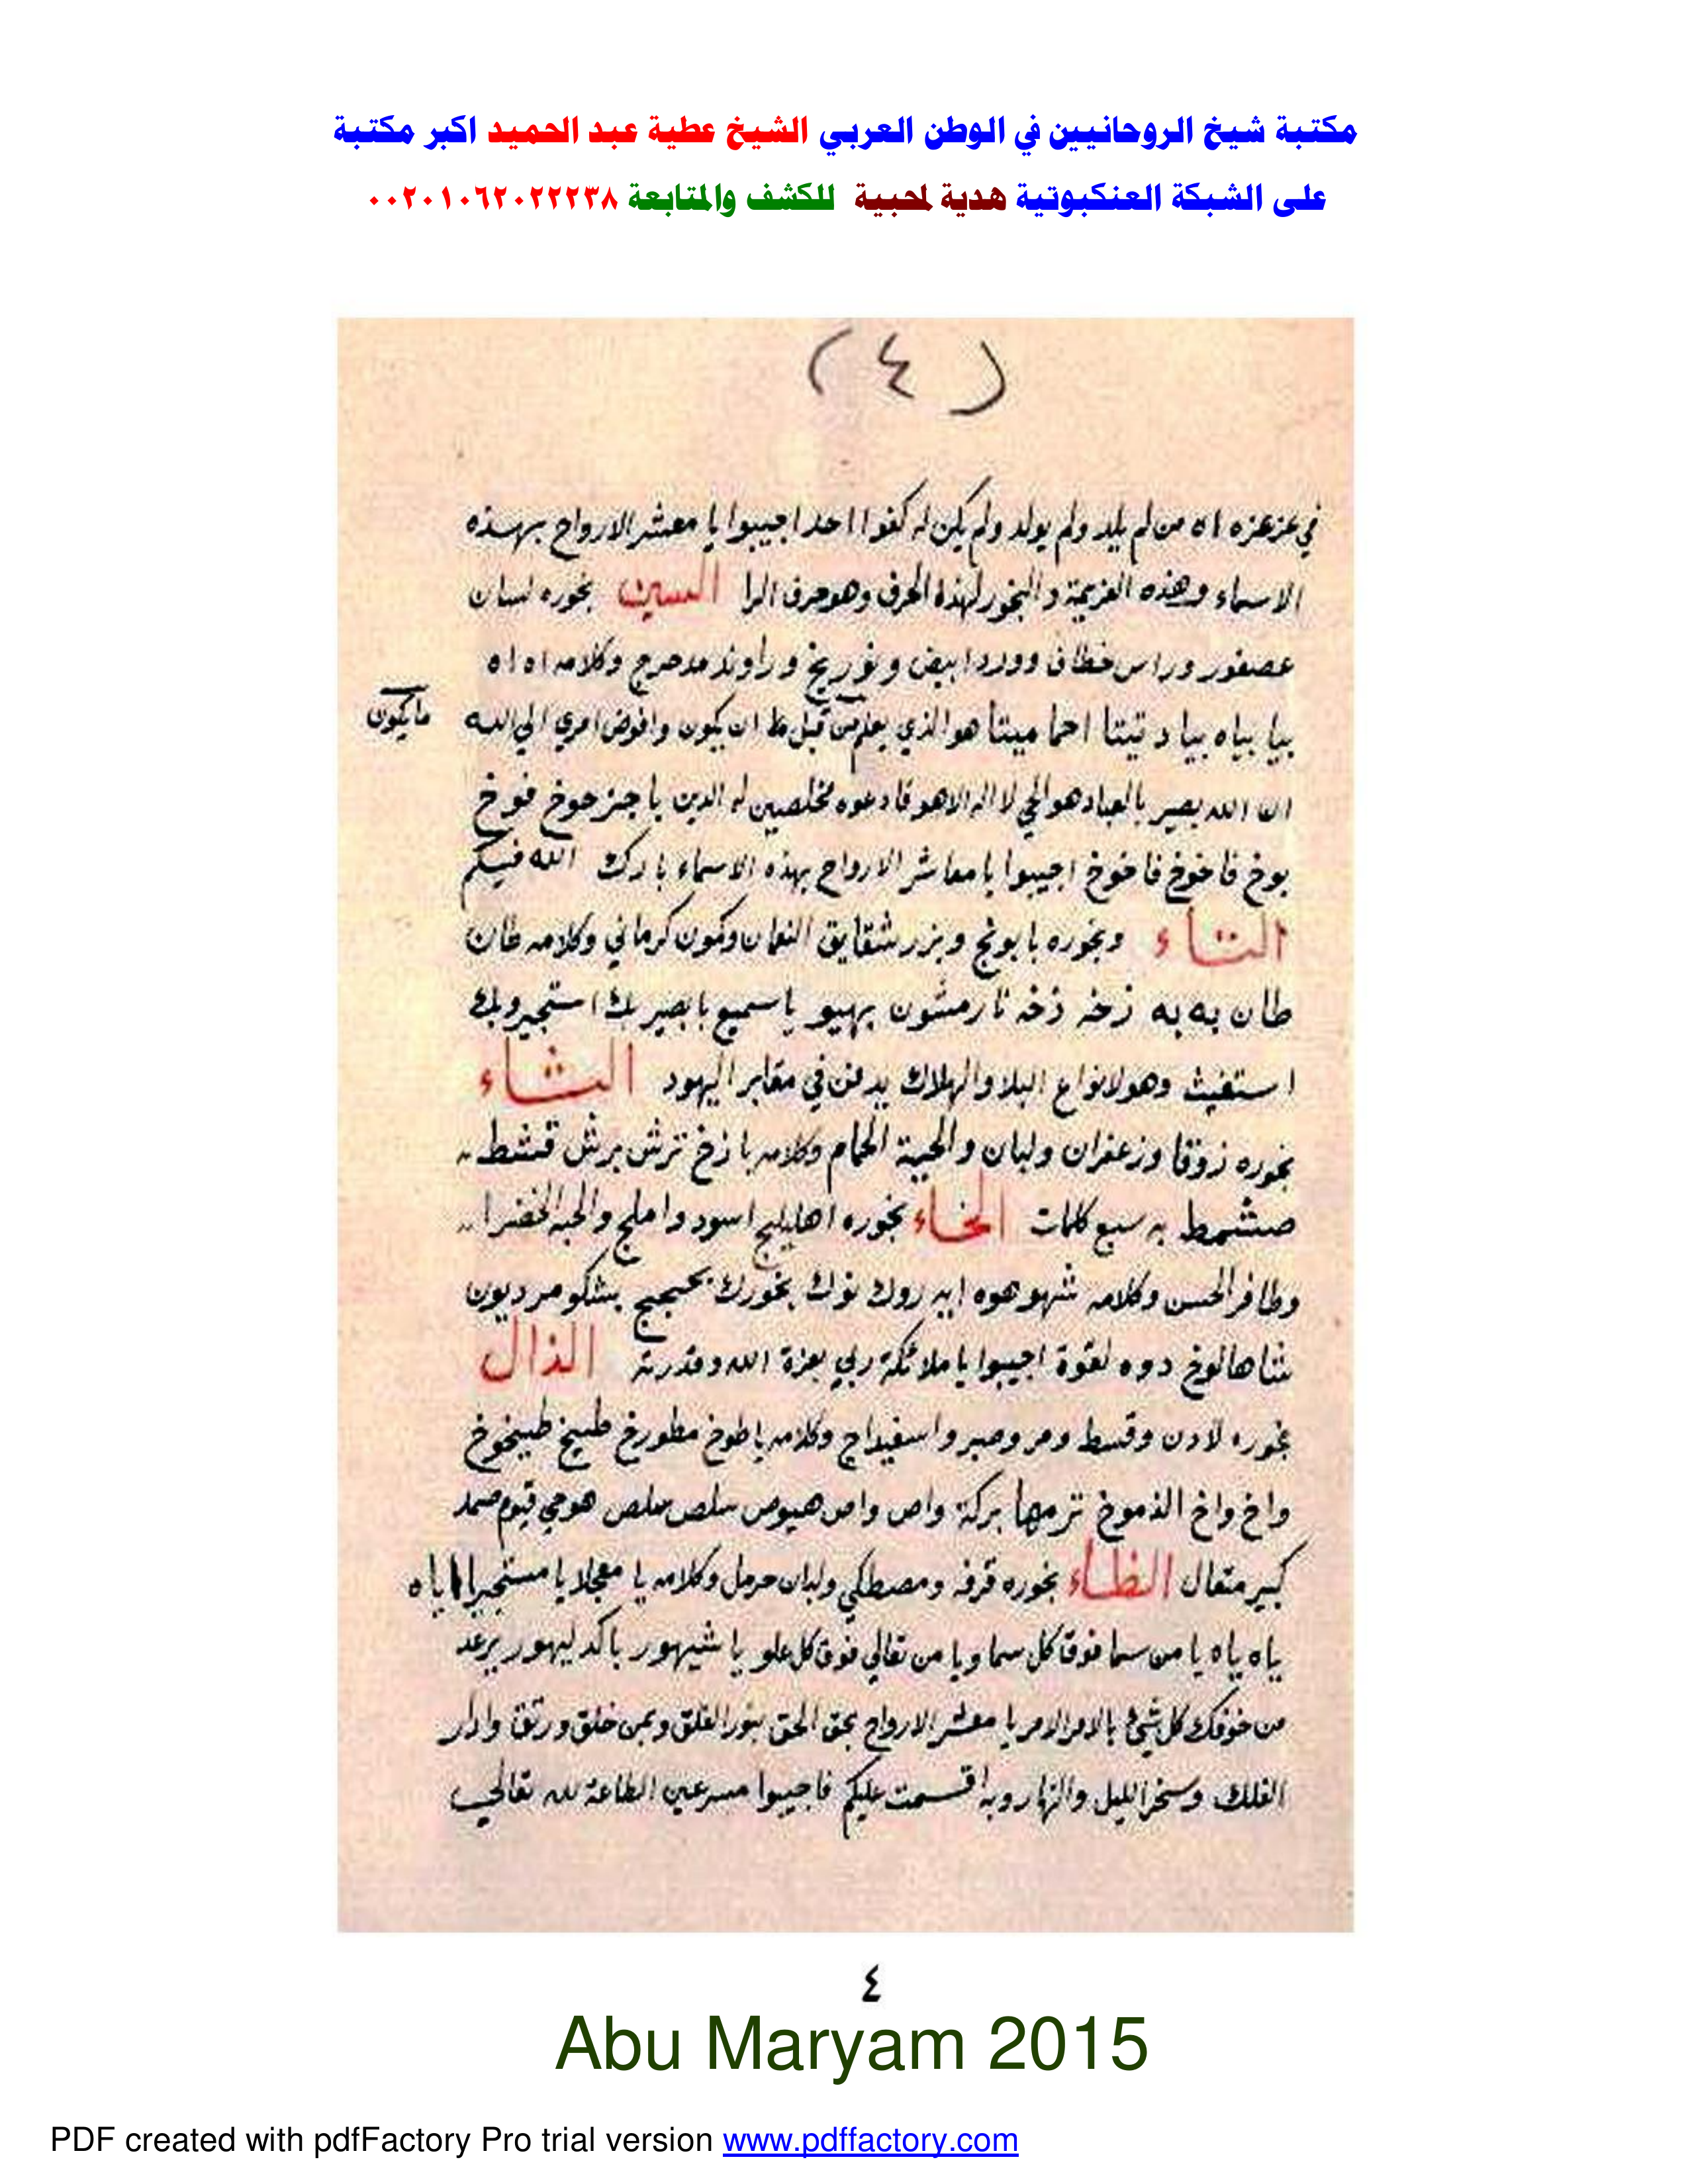 مكتبة شيخ الروحانيين في الوطن العربي الشيخ عطية عبد الحميد اكبر مكتبة
على الشبكة العنكبوتية هدية لمحبية للكشف والمتابعة ٠٠٢٠١٠٦٢٠٢٢٢٣٨
(٤)
في عزعزه اه من لم يلد ولم يولد ولم يكن له كفوا احد اجيبوا يا معشر الارواح بهذه
الاسماء وهذه العزيمة والبخور لهذا الحرف وهو حرف الرا السين بخوره لسان
عصفور وراس خطاف وورد ابيض و وراوند مدحرج وكلامه اه اه
بيا بياه بيا احما ميتا هو الذي يعلم من قبل ان يكون وافوض امري الي الله
مايكون
ان الله بصير بالعباد هو الحي لا اله الا هو فادعوه مخلصين له الدين يا حوخ فوخ
بوخ فاخوخ فاخوخ اجيبوا يا معاشر الارواح بهذه الاسماء بارك الله فيكم
التاء وبخوره بابونج وبزر شقايق النعمان وكمون كرماني وكلامه طان
طان به به زخه زخه بهيو يا سميع يا بصير بك استجير وبك
استغيث وهو لانواع البلا والهلاك يدفن في مقابر اليهود الثاء
بخوره زوفا وزعفران ولبان والحية الحمام وكلامه يا زخ ترش برش قشط
صشمط به سبع كلمات الخاء بخوره اهليلج اسود واملج والحبه الخضرا
وظافر الحسن وكلامه شهو هوه ايه روك نوك بخورك بشكو مرديون
شاهالوخ دوه لقوة اجيبوا يا ملائكة ربي بعزة الله وقدرته الذال
بخوره لادن وقسط ومر وصبر واسفيداج وكلامه يا طوخ مطورخ طبيخ طبيخوخ
واخ واخ الذموخ ترمها بركة واص واص هيوص سلص سلص هو حي قيوم صمد
كبير متعال الظاء بخوره قرفه ومصطكي ولبان حرمل وكلامه يا معجلا يا مستجيرا اياه
ياه ياه يا من سما فوق كل سما ويا من تعالي فوق كل علو يا شيهور يرعد
من خوفك كل شئ بالامر الامر يا معشر الارواح بحق الحق بنور الفلق وبمن خلق ورتق وادار
الفلك وسخر الليل والنهار وبه اقسمت عليكم فاجيبوا مسرعين الطاعة لله تعالي
٤
Abu Maryam 2015
PDF created with pdfFactory Pro trial version www.pdffactory.com